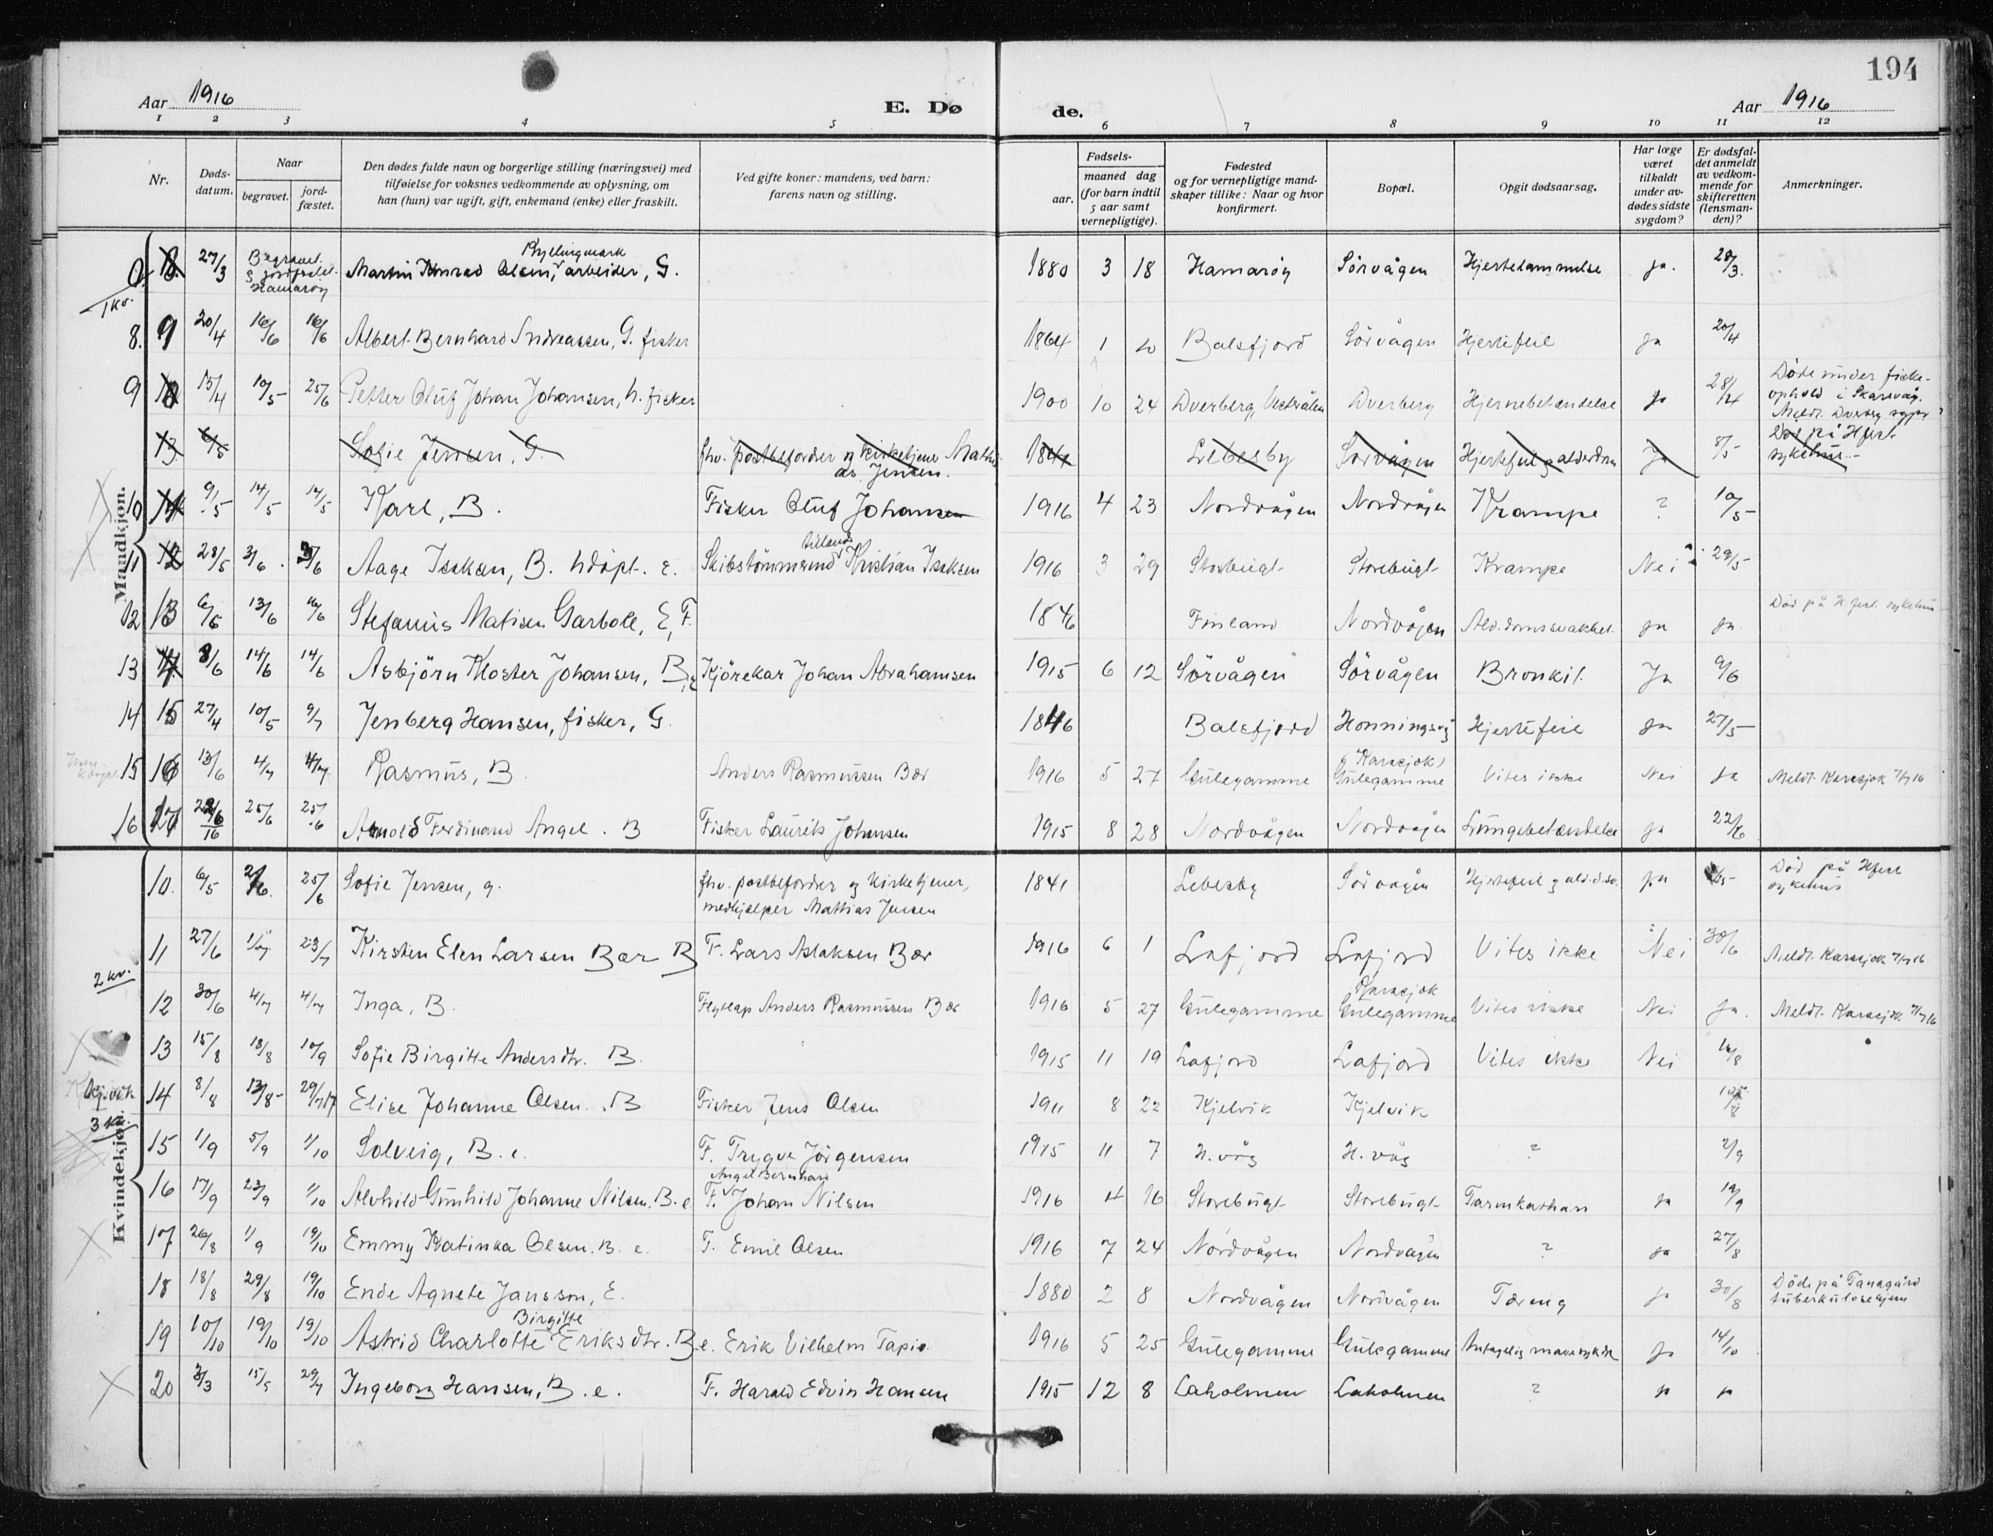 194
Aar 1916
E. Dø
de.
Aar 1916
1 2 3 4 5 6 7 8 9 10 11 12
Nr.
Døds-
datum.
Naar
begravet.
jord-
fæstet.
Den dødes fulde navn og borgerlige stilling (næringsvei) med
tilføielse for voksnes vedkommende av oplysning, om
han (hun) var ugift, gift, enkemand (enke) eller fraskilt.
Ved gifte koner: mandens, ved barn:
farens navn og stilling.
Fødsels-
aar.
maaned dag
(for barn indtil
5 aar samt
vernepligtige).
Fødested
og for vernepligtige mand-
skaper tillike: Naar og hvor
konfirmert.
Bopæl.
Opgit dødsaarsag.
Har læge
været
tilkaldt
under av-
dødes sidste
sygdom?
Er dødsfal-
det anmeldt
av vedkom-
mende for
skifteretten
(lensman-
den)?
Anmerkninger.
Mandkjøn.
27/3 Begravet & jordfæstet Hamarøy Martin Konrad Olsen, arbeider, G. 1880 3 18 Hamarøy Sörvågen Hjertelammelse ja. 28/3.
1 kr.
8. 9 20/4 16/6 16/6 Albert Bernhard Andreassen, G. fisker 1864 1 20 Balsfjord Sörvågen Hjertefeil ja 20/4
9 15/4 10/5 25/6 Petter Oluf Johan Johansen, U. fisker 1900 10 24 Dverberg, Vesterålen Dverberg Hjernebetændelse ja 28/4 Döde under fiske-
ophold i Skarsvåg.
Meldt Dverberg
13 6/5 Sofie Jensen, G. fhv. postbefordrer og kirketjener Mathi-
as Jensen. 1841 Lebesby Sörvågen Hjertefeil og alderdom Ja 8/5 Död på Hfest
sykehus.
10 9/5 14/5 14/5 Karl, B. Fisker Oluf Johansen 1916 4 23 Nordvågen Nordvågen Krampe ? 10/5
11 12 28/5 3/6 Aage Isaksen, B. Udöpt. e. Skibstömmermand Kristian Isaksen 1916 3 29 Storbugt Storebugt Krampe Nei 29/5
12 13 6/6 13/6 16/6 Stefanus Matisen Garbole, E, F. 1846 Finland Nordvågen Ald.domssvakhet ja ja. Död på H.fest. sykehus
13 8/6 14/6 14/6 Asbjörn Kloster Johansen, B, e Kjörekar Johan Abrahamsen 1915 6 12 Sörvågen Sörvågen Bronkit. Ja 9/6
14 15 27/4 10/5 9/7 Jenberg Hansen, fisker, G. 1846 Balsfjord Honningsvåg Hjertefeil ja 27/5
15 16 13/6 4/7 4/7 Rasmus, B Anders Rasmussen Bær 1916 5 27 Gulegamme (Karasjok)
Gulegamme Vites ikke Nei ja Meldt Karasjok 7/7 16
16 17 25/6 25/6 Arnold Ferdinand Angel. B Fisker Laurits Johansen 1915 8 28 Nordvågen Nordvågen Lungebetændelse ja 22/6
Kvindekjøn.
10. 6/5 25/6 Sofie Jensen, g. fhv. postbefordrer og Kirketjener,
medhjelper Mathias Jensen 1841 Lebesby Sörvågen Hjertefeil og ja Död på Hfest
sykehus
11 27/6 1/7 23/7 Kirsten Elen Larsen Bær B F. Lars Aslaksen Bær 1916 6 1 Lafjord Lafjord Vites ikke Nei 30/6 Meldt. Karasjok 7/7 16
2 kr.
12 30/6 4/7 4/7 Inga, B. Flytlap Anders Rasmussen Bær 1916 5 27 Gulegamme Karasjok
Gulegamme Vites ikke Nei Ja. Meldt. Karasjok 7/7 16
13 15/8 18/8 10/9 Sofie Birgitte Andersdtr. B. 1915 11 19 Lafjord Lafjord Vites ikke Nei 16/8
Kj.vik 14 8/8 13/8 29/7 17 Elise Johanne Olsen. B Fisker Jens Olsen 1911 8 22 Kjelvik Kjelvik
3 kr.
15 1/9 5/9 1/10 Solveig, B. e. F. Trygve Jörgensen 1915 11 7 H. våg H. våg ? 2/9
16 17/9 23/9 1/10 Alvhild Gunhild Johanne Nilsen. B. e Angel Bernhard
F. Johan Nilsen 1916 4 16 Storebugt Storebugt Tarmkatharr ja 19/9
17 26/8 1/9 19/10 Emmy Katinka Olsen. B. e. F. Emil Olsen 1916 7 24 Nordvågen Nordvågen ? ja 27/8
18 18/8 29/8 19/10 Ende Agnete Jansson, E. 1880 2 8 Nordvågen Nordvågen Tæring ja 30/8 Döde på Tanagård
tuberkulosehjem
19 10/10 19/10 19/10 Astrid Charlotte Birgitte Eriksdtr. B. e. Erik Vilhelm Tapio 1916 5 25 Gulegamme Gulegamme Antagelig mavesykdom ja 14/10
20 3/3 15/5 29/7 Ingeborg Hansen, B. e. F. Harald Edvin Hansen 1915 12 8 Laholmen Laholmen ? ja ja